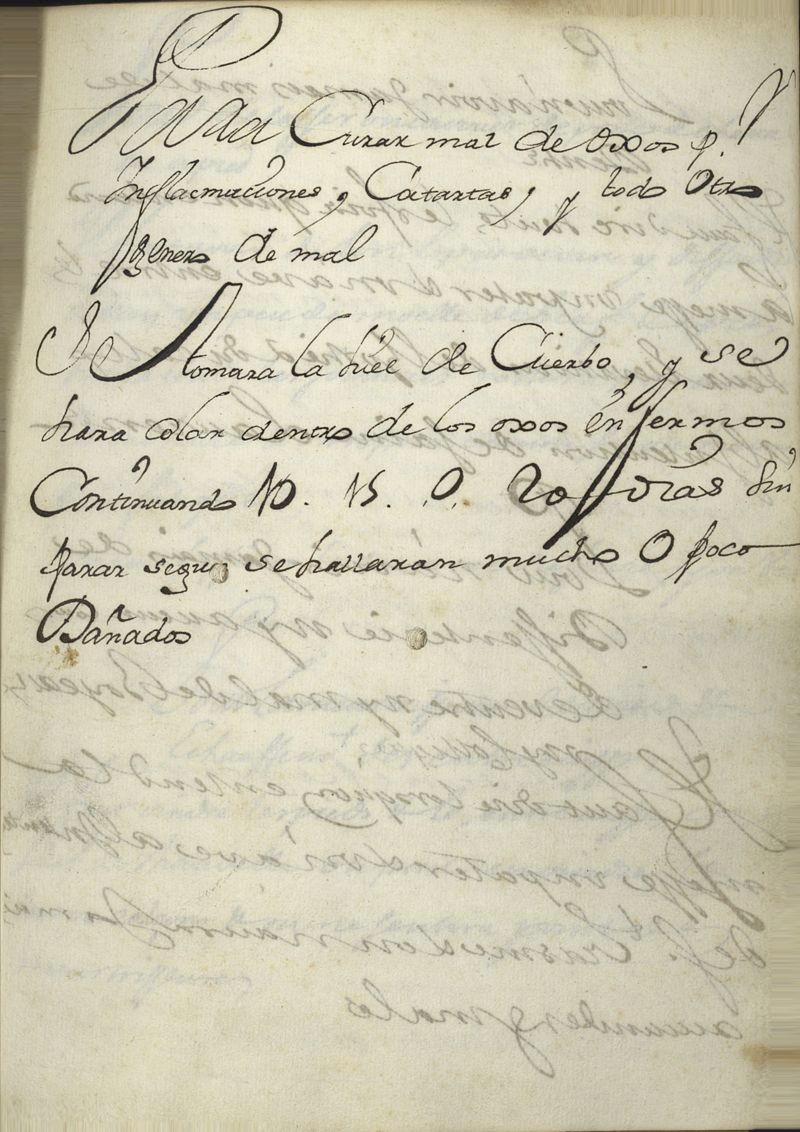 Para Curar mal de Oxos p.r
Inflacmaciones, Catartas, y todo Otro
genero de mal
Se tomara la hiel de Cuerbo, y se
hara colar dentro de los oxos enfermos
Continuando 10. 15. O. 20 dias sin
parar segun se hallaran mucho O poco
Dañados